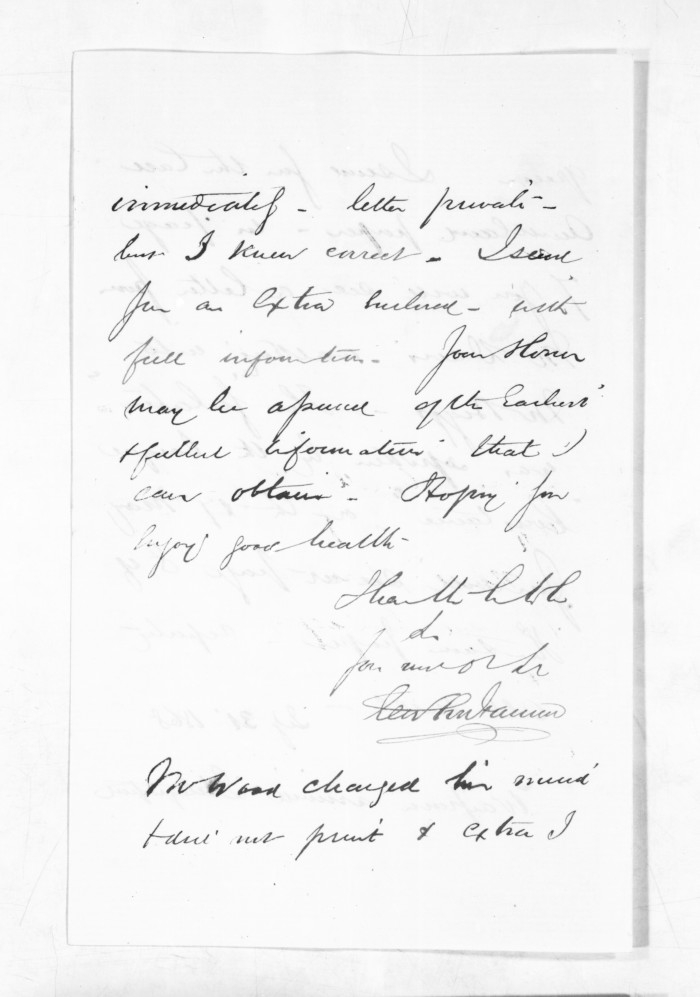 immediately - letter private -
but I knew correct - I send
you an Extra Enclosed - with
full information - Your Honor
may be assured of the Earliest
& fullest information that I
can obtain - Hoping you
Enjoy good health -
I have the honor to be
Sir
Your most obt sr
Mr Wood changed his mind
& did not print & extra I